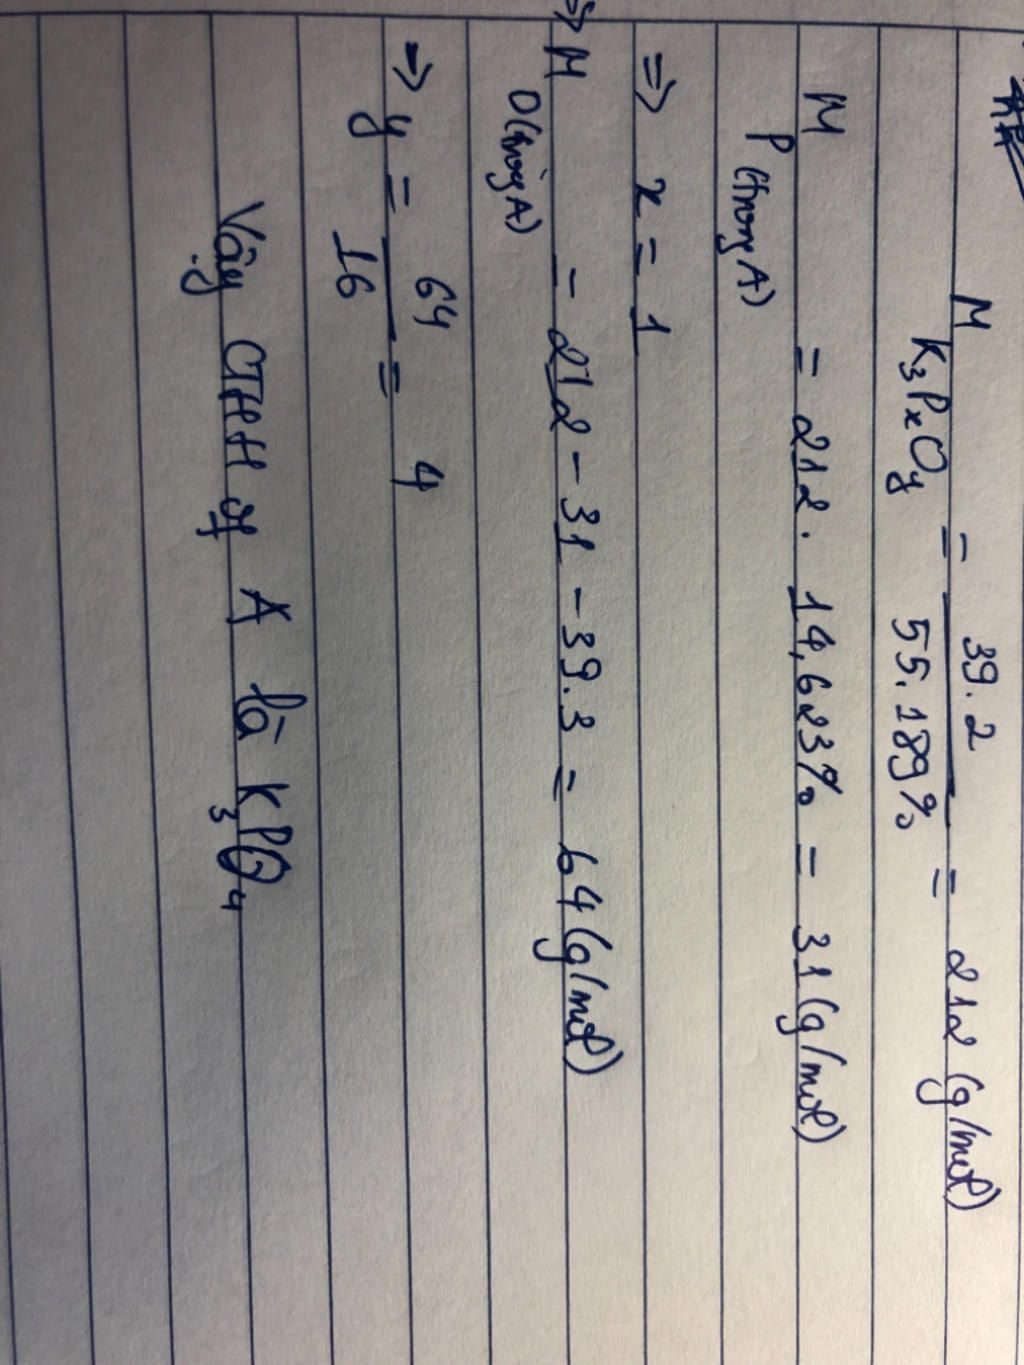 M K₃PₓOᵧ = 39.2 / 55.189% = 212 (g/mol)
M P (trong A) = 212. 14,623% = 31 (g/mol)
=> x = 1
=> M O (trong A) = 212 - 31 - 39.3 = 64 (g/mol)
=> y = 64 / 16 = 4
Vậy CTHH of A là K₃PO₄